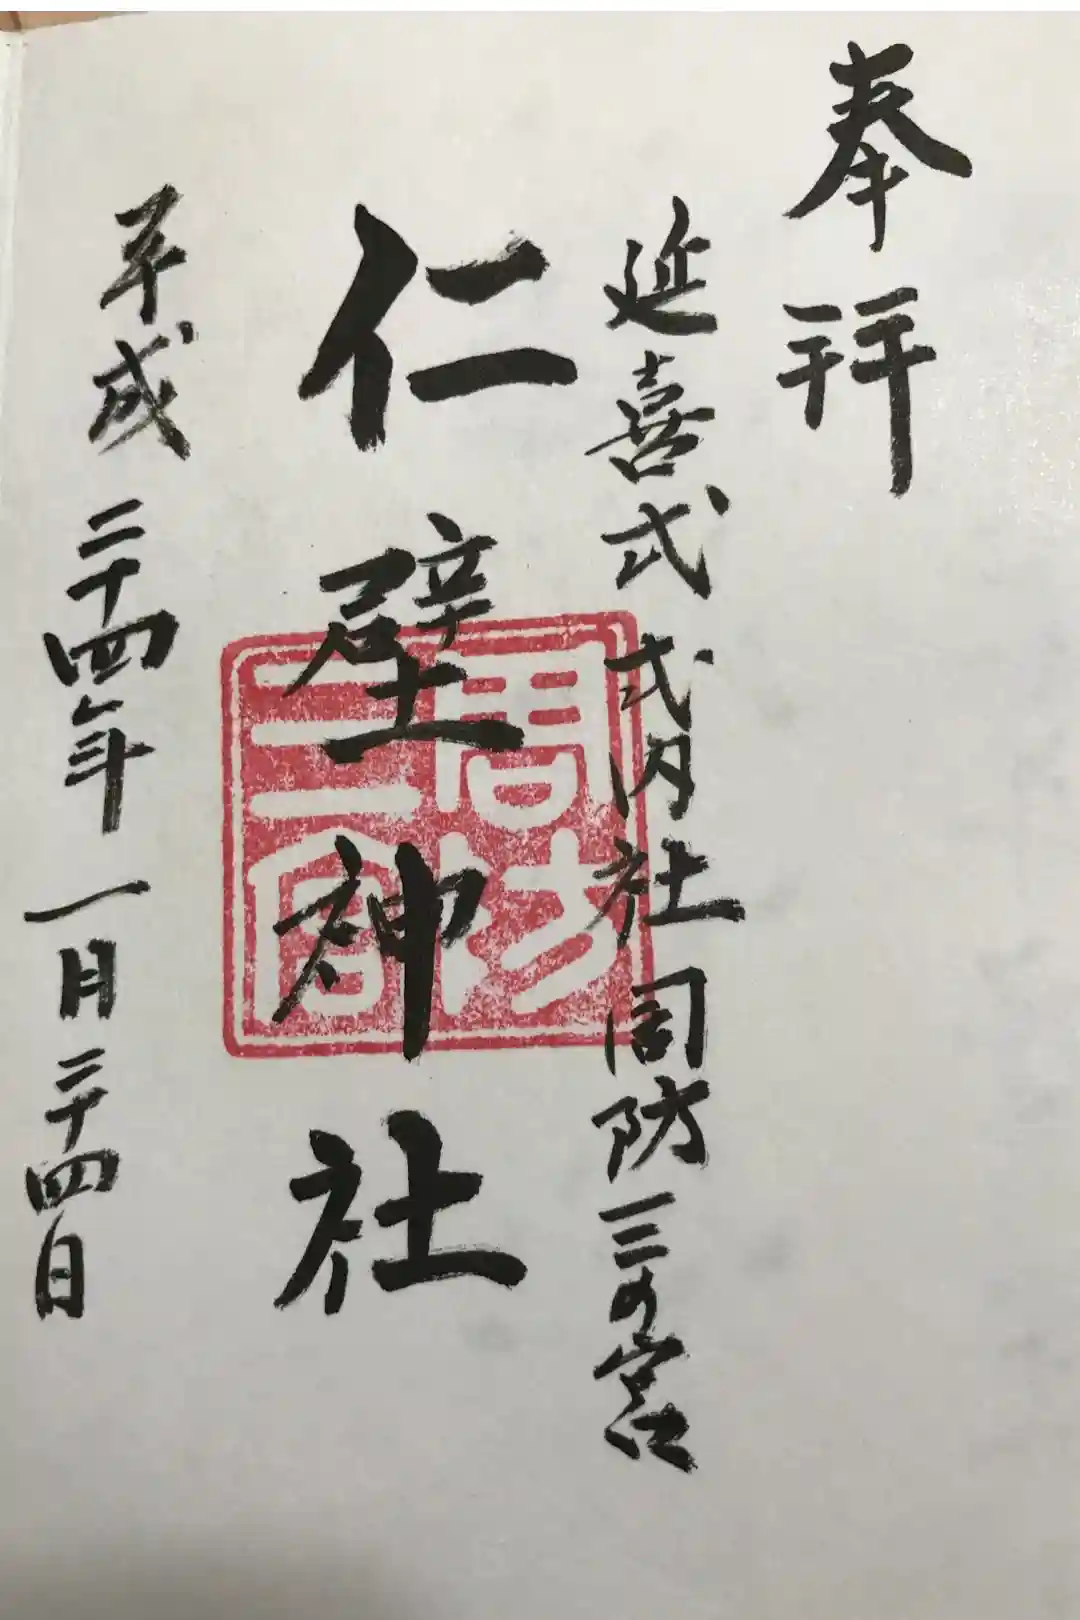 奉拝
延喜式式内社周防三の宮
仁壁神社
周防
三宮
平成二十四年一月二十四日